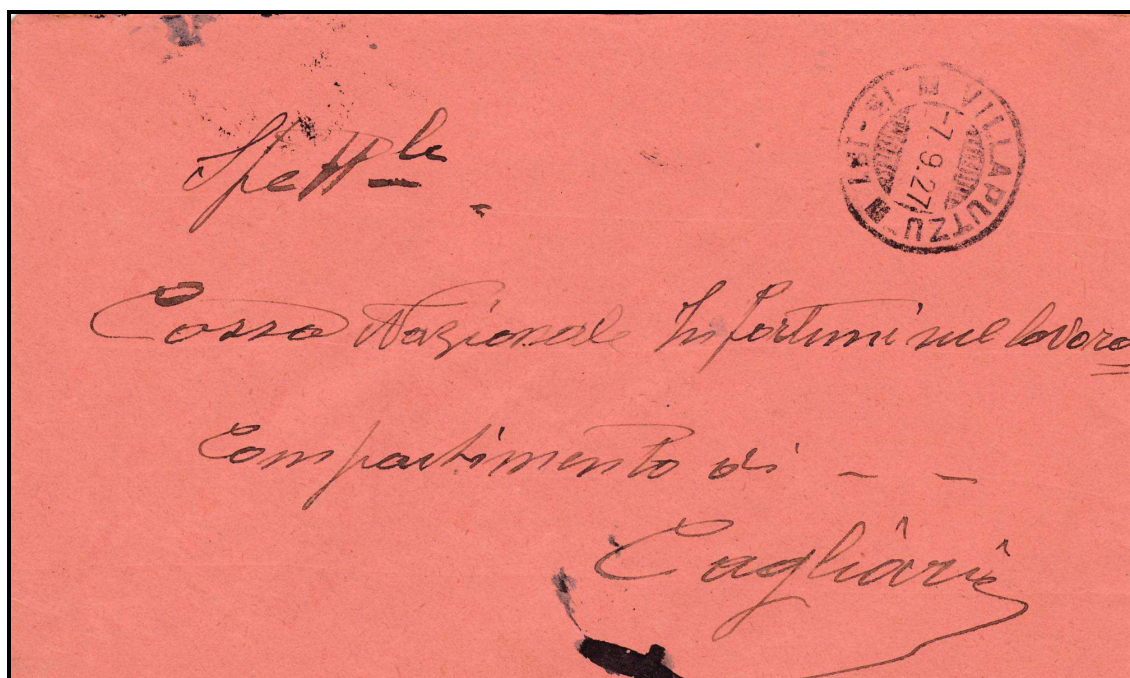 Spett.le
VILLAPUTZU
-7.9.27
Cassa Nazionale Infortuni sul lavoro
Compartimento di - -
Cagliari